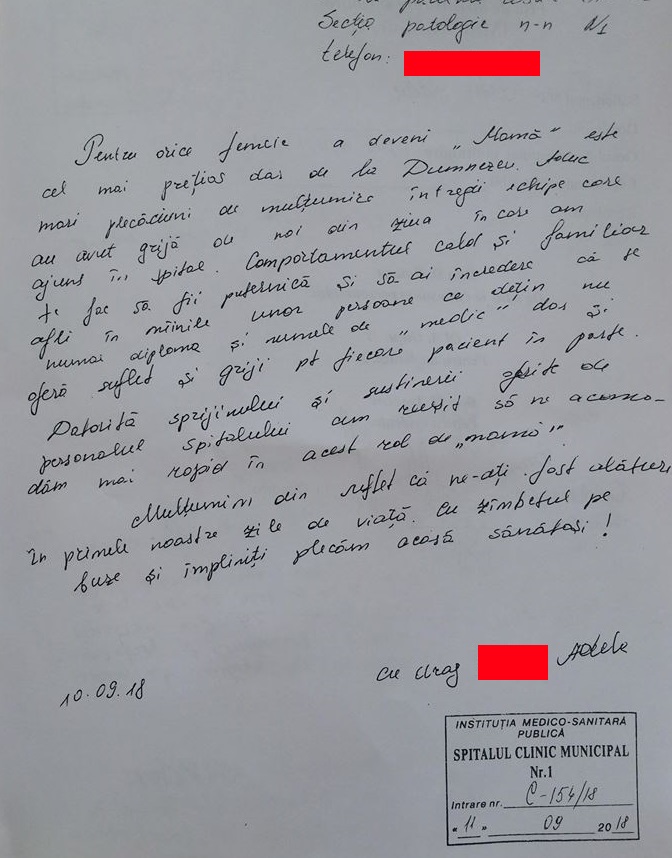 Secția patologie n-n N1
telefon:
Pentru orice femeie a deveni „Mamă” este
cel mai prețios dar de la Dumnezeu. Aduc
mari plecăciuni de mulțumire întregii echipe care
au avut grijă de noi din ziua în care am
ajuns în spital. Comportamentul cald și familiar
te fac să fii puternică și să ai încredere că te
afli în mîinile unor persoane ce dețin nu
numai diploma și numele de „medic” dar și
oferă suflet și griji pt fiecare pacient în parte.
Datorită sprijinului și susținerii oferite de
personalul spitalului am reușit să ne acomo-
dăm mai rapid în acest rol de „mamă”.
Mulțumim din suflet că ne-ați fost alături
în primele noastre zile de viață. Cu zîmbetul pe
buze și împliniți plecăm acasă sănătoși!
Cu drag Adela
10.09.18
INSTITUȚIA MEDICO-SANITARĂ
PUBLICĂ
SPITALUL CLINIC MUNICIPAL
Nr.1
Intrare nr. C-154/18
« 11 » 09 2018